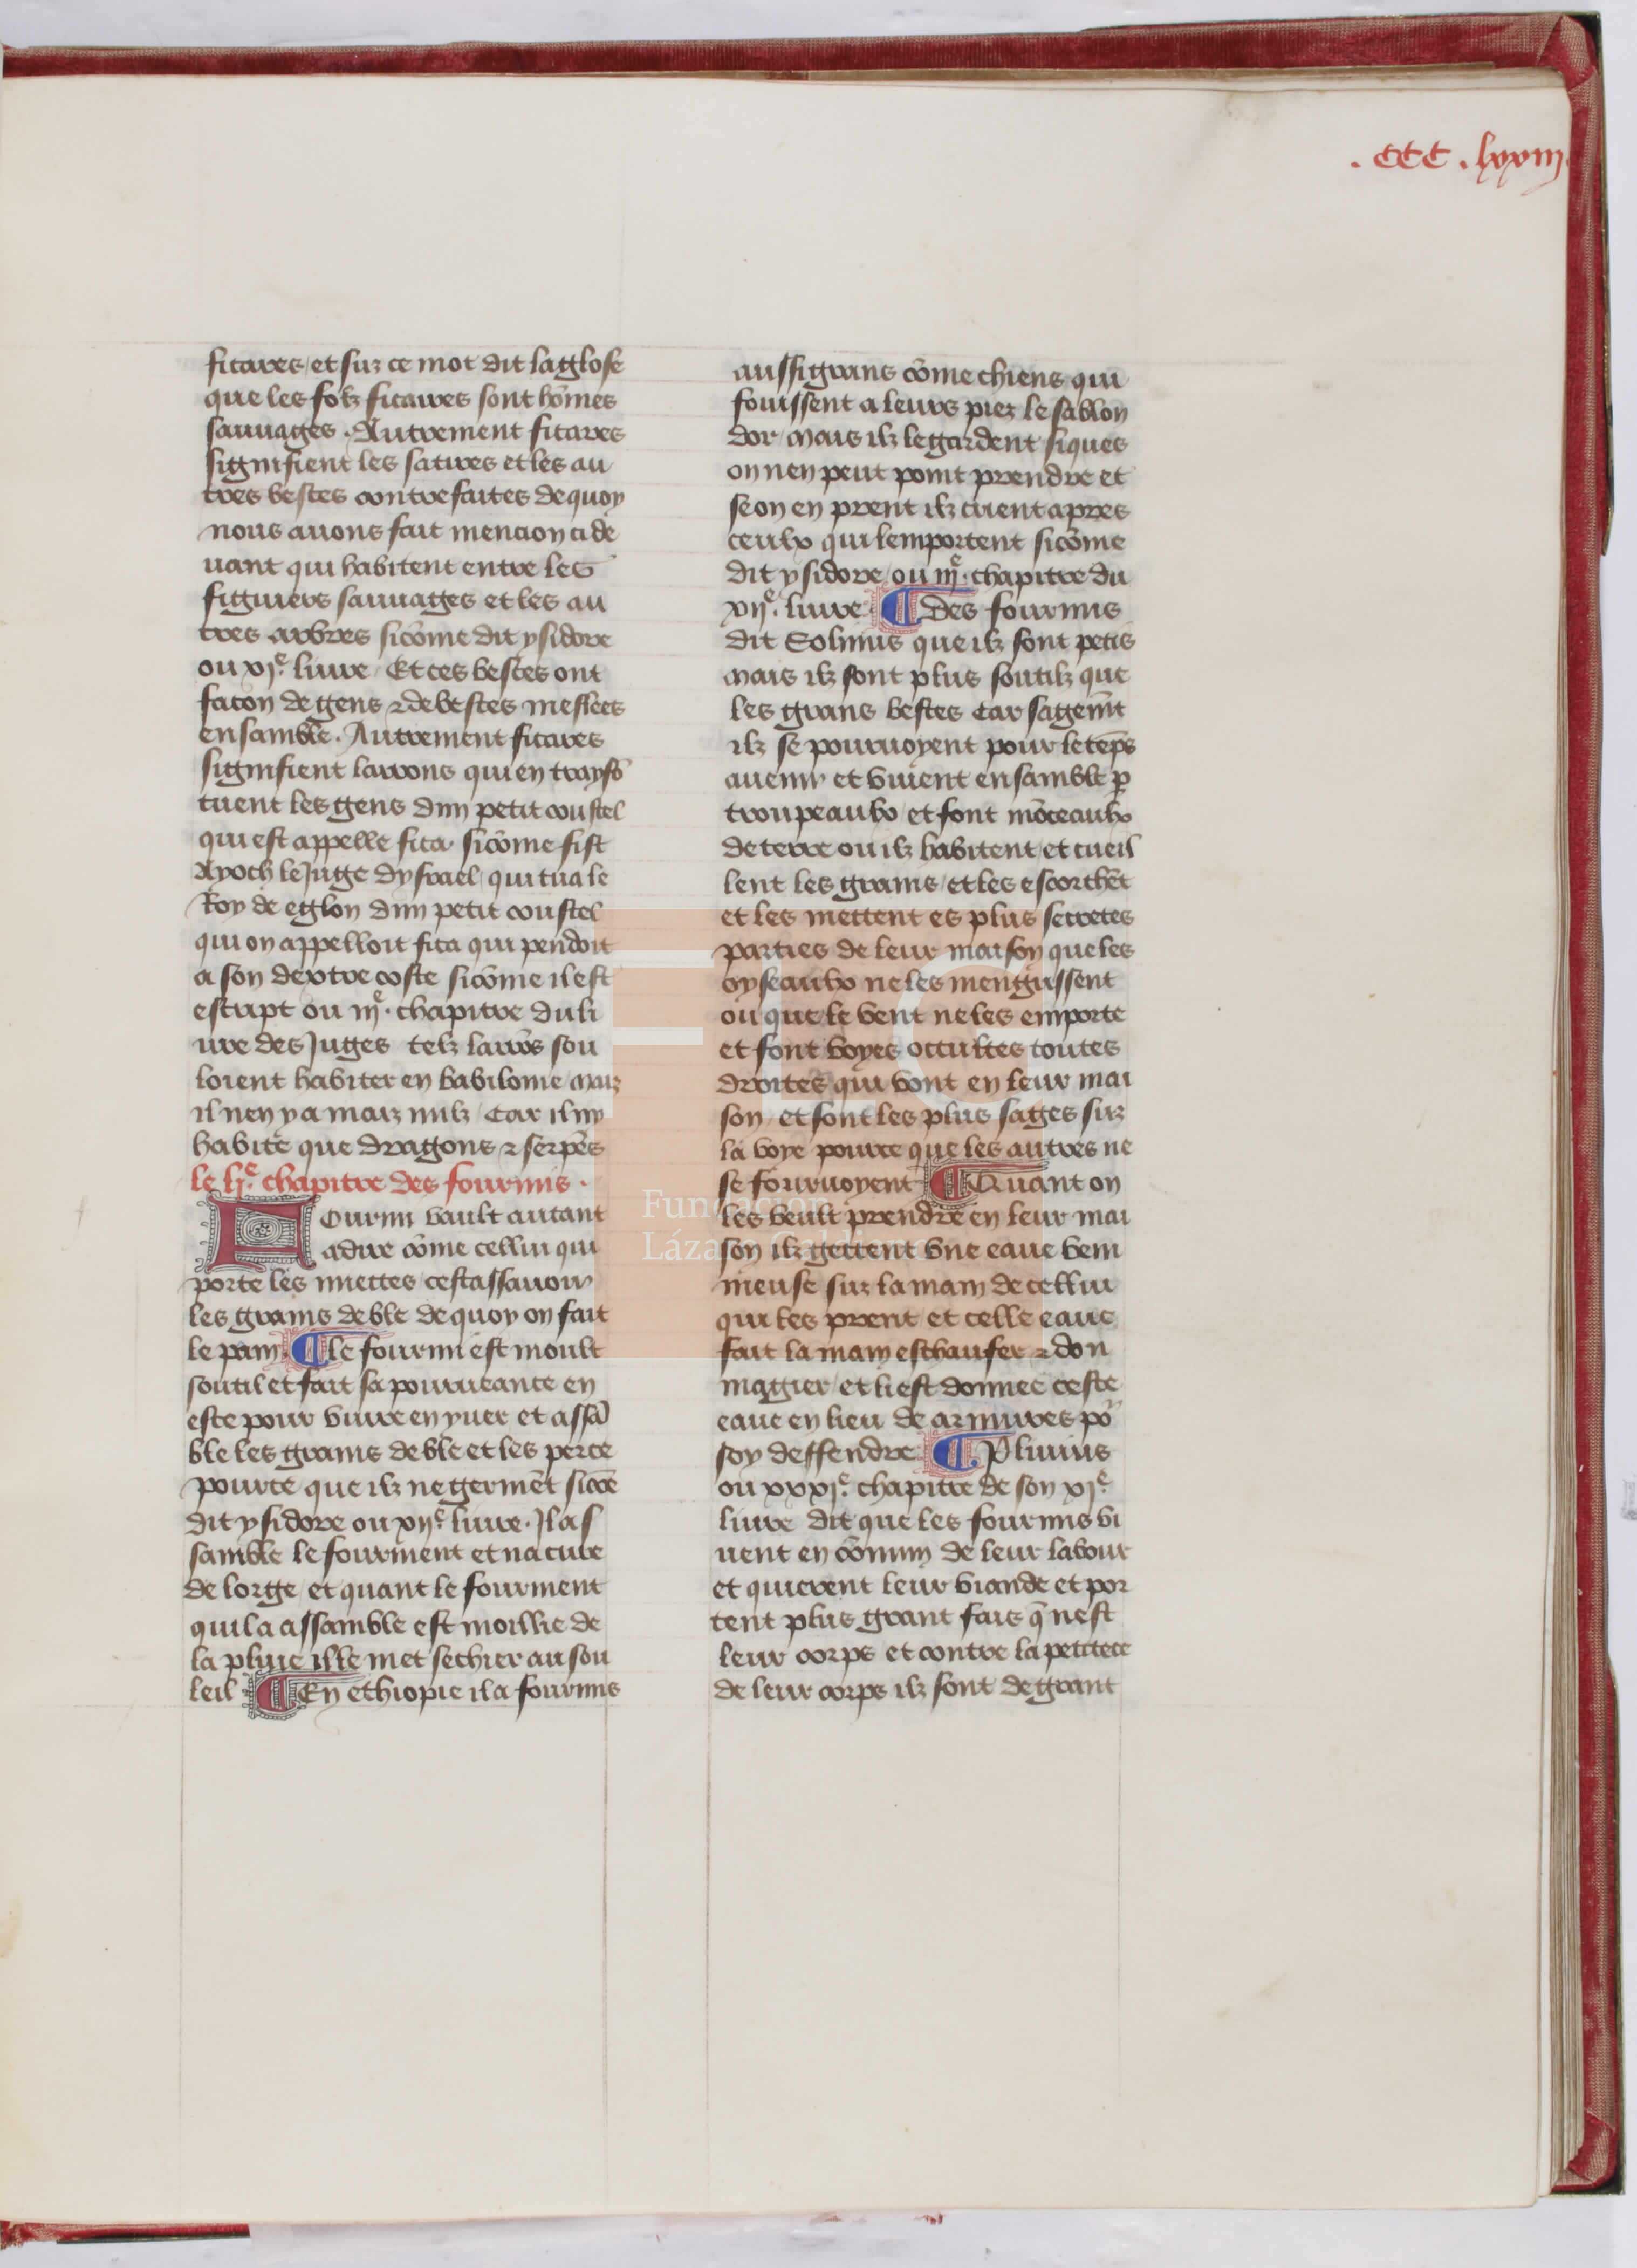 . CCC . lxxiij
ficaires / et sur ce mot dit la glose
que les folz ficaires sont hōmes
sauuages . Autrement ficaires
signifient les satires et les au
tres bestes contrefaites de quoy
nous auons fait mencion ci de
uant qui habitent entre les
figuiers sauuages et les au
tres arbres sicōme dit ysidore
ou xjᵉ. liure / Et ces bestes ont
facon de gens ⁊ de bestes meslees
ensamble . Autrement ficaires
signifient larrons qui en traysō
tuent les gens dun petit coustel
qui est appelle sica / sicōme fist
Ayoth le Juge dysrael / qui tua le
Roy de eglon dun petit coustel
qui on appelloit sica qui pendoit
a son dextre coste sicōme il est
escript ou iijᵉ. chapitre du li
ure des Juges telz larrōs sou
loient habiter en babilonie maiz
il nen y a maiz nulz / Car il ny
habite que dragons ⁊ serpēs
le ljᵉ. chapitre des fourmis .
Fourmi vault autant
a dire cōme cellui qui
porte les miettes / cest assauoir
les grains de ble de quoy on fait
le pain . ¶ le fourmi est moult
soutil et fait sa pourueance en
este pour viure en yuer et assā
ble les grains de ble et les perce
pource que ilz ne germēt sicōe
dit ysidore ou xijᵉ. liure . Il as
samble le fourment et na cure
de lorge / et quant le fourment
quil a assamble est moillie de
la pluie il le met sechier au sou
leil . ¶ En ethiopie il a fourmis
aussi grans cōme chiens qui
fouissent a leurs piez le sablon
dor / mais ilz le gardent si ques
on nen peut point prendre et
se on en prent ilz cuient apres
ceulx qui lemportent sicōme
dit ysidore / ou iijᵉ. chapitre du
xijᵉ. liure . ¶ des fourmis
dit Solinus que ilz sont petis
mais ilz sont plus soutilz que
les grans bestes Car sagemt̄
ilz se pouruoyent pour le tēps
auenir et viuent ensamble ꝑ
troupeaulx / et font mōceaulx
de terre ou ilz habitent / et cueil
lent les grains / et les escorchēt
et les mettent es plus secretes
parties de leur maison que les
oyseaulx ne les mengussent
ou que le vent ne les emporte
et font voyes occultes toutes
droites qui vont en leur mai
son / et sont les plus sages sur
la voye pource que les autres ne
se fouruoyent ¶ Quant on
les veult prendre en leur mai
son ilz gettent vne eaue veni
meuse sur la main de cellui
qui les prent et celle eaue
fait la main eschaufer ⁊ don
magier / et li est donnee ceste
eaue en lieu de armures po᷑
soy deffendre . ¶ Plinius
ou xxxjᵉ. chapitre de son xjᵉ
liure dit que les fourmis vi
uent en cōmun de leur labour
et quierent leur viande et por
tent plus grant fais q̄ nest
leur corps et contre la petitece
de leur corps ilz sont de grant
Fundación
Lázaro Galdiano